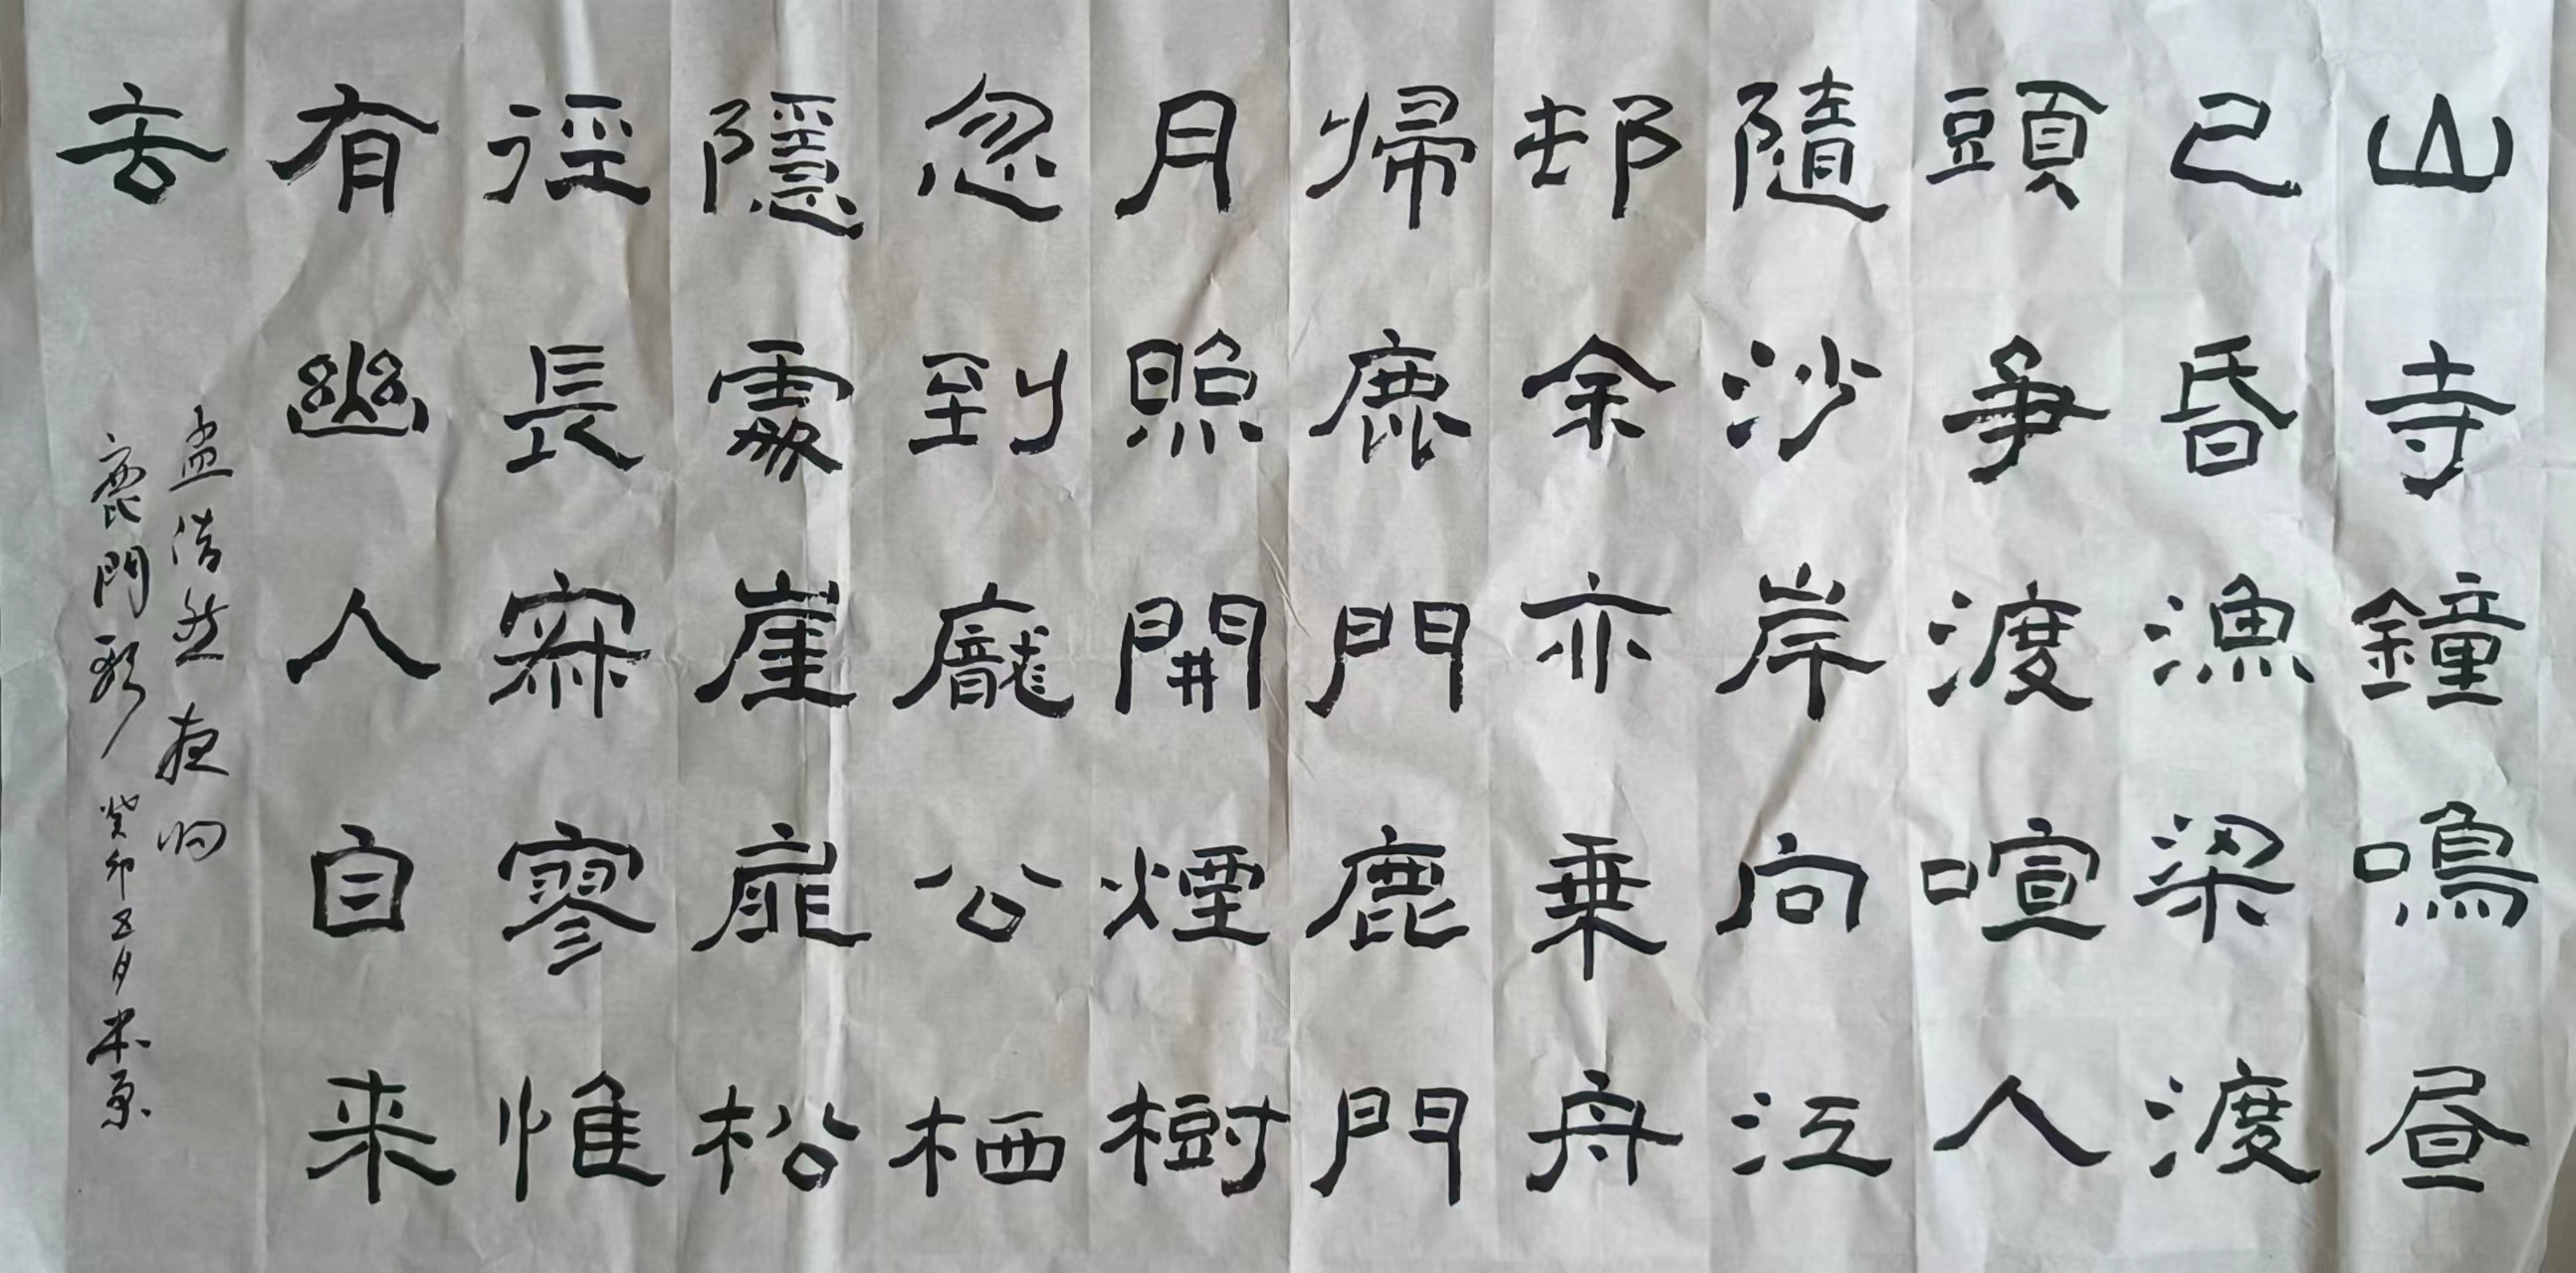 山寺鐘鳴昼
已昏漁梁渡
頭爭渡喧人
隨沙岸向江
邨余亦乗舟
帰鹿門鹿門
月照開煙樹
忽到龐公栖
隱處崖扉松
徑長寂寥惟
有幽人自来
去
孟浩然夜归
鹿門歌 癸卯五月 米原